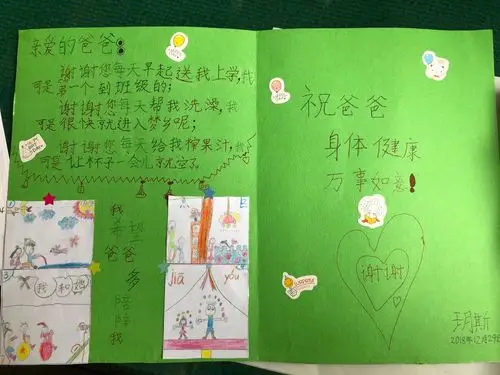 亲爱的爸爸:
谢谢您每天早起送我上学,我
可是第一个到班级的;
谢谢您每天帮我洗澡,我
可是很快就进入梦乡呢;
谢谢您每天给我榨果汁,我
可是让杯子一会儿就空了
我
希望
爸爸
多
陪陪
我
1
3
我和她
jiā yóu
祝爸爸
身体健康
万事如意!
谢谢
2018年12月29日